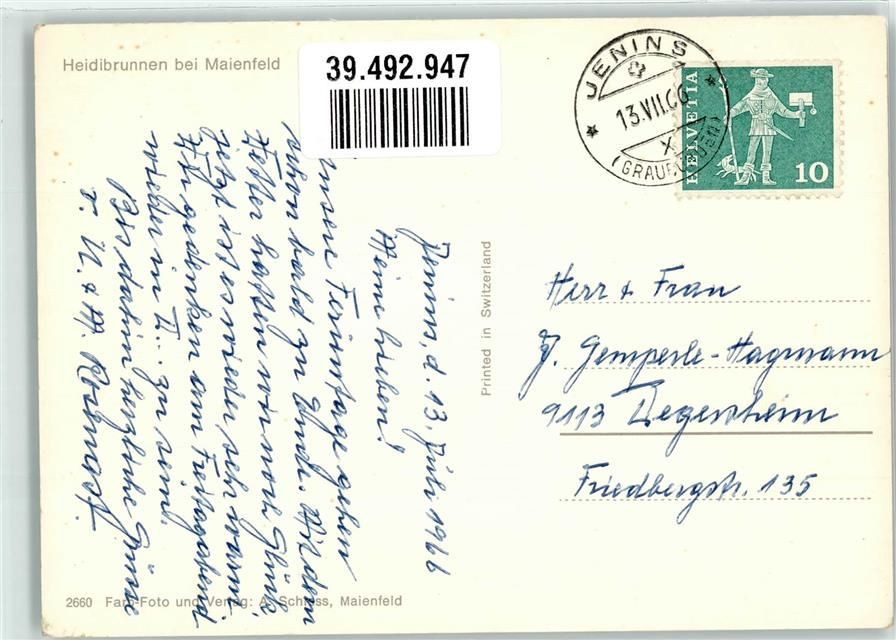 Heidibrunnen bei Maienfeld
39.492.947
JENINS
13.VII.66
(GRAUBÜNDEN)
HELVETIA
10
Jenins, d. 13. Juli 1966
Meine Lieben!
Unsere Ferientage gehen
schon bald zu Ende. Mit dem
Wetter hatten wir noch Glück
jetzt ist es wieder sehr warm.
Wir gedenken am Freitagabend
wieder in D... zu sein.
Bis dahin herzliche Grüsse
Printed in Switzerland
Herr & Frau
J. Gemperle-Hagmann
9113 Degersheim
Friedbergstr. 135
2660 Farb-Foto und Verlag: A. Schless, Maienfeld